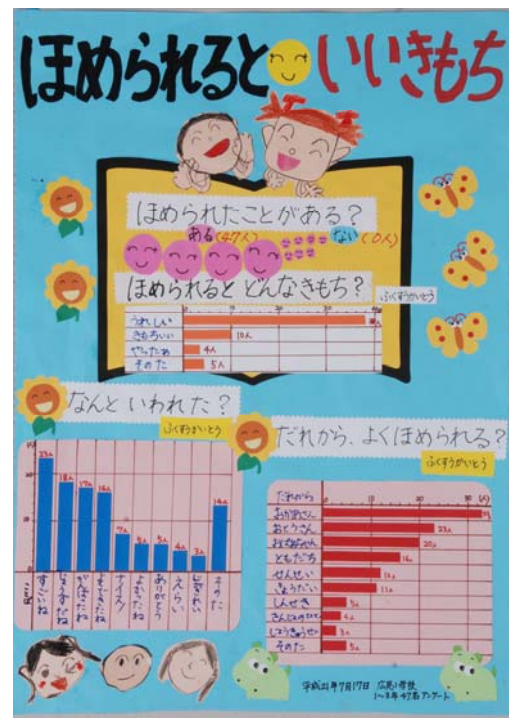 ほめられると いいきもち
ほめられたことがある?
ある(47人) ない(0人)
ほめられると どんなきもち?
ふくすうかいとう
うれしい
きもちいい 10人
やったあ 4人
そのた 5人
なんと いわれた?
ふくすうかいとう
23人 18人 17人 16人 7人 5人 5人 4人 3人 14人
すごいね
じょうずだね
がんばったね
よくできたね
ナイス!
よかったね
ありがとう
えらい
そのた
だれから、よくほめられる?
ふくすうかいとう
だれから 0 10 20 30 (人)
おかあさん
おとうさん 23人
おばあちゃん 20人
ともだち 16人
せんせい
きょうだい 11人
しんせき 5人
きんじょのひと 4人
3人
そのた 5人
平成21年7月17日
1〜3年 47名アンケート